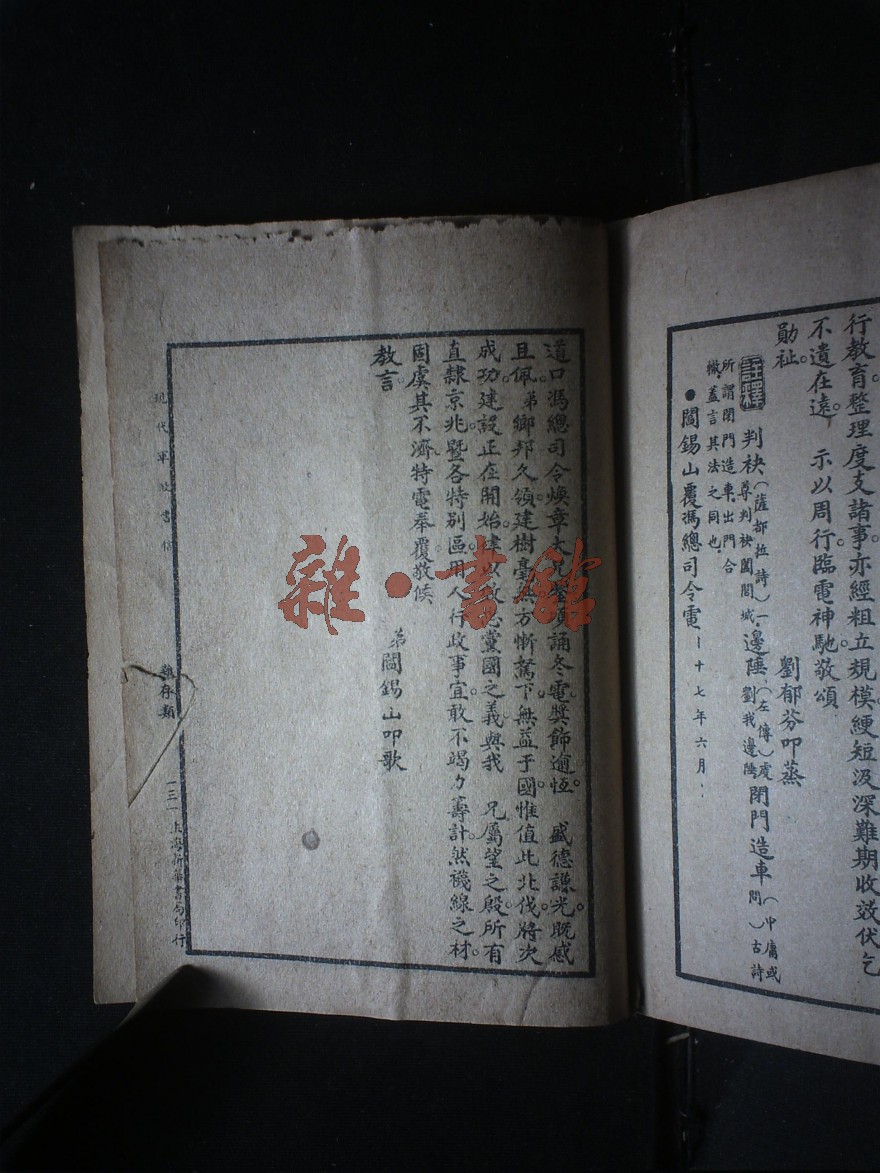 行教育。整理度支諸事。亦經粗立規模。綆短汲深。難期收效。伏乞
不遺在遠。示以周行。臨電神馳。敬頌
勛祉。劉郁芬叩蒸
註釋 判袂(薩都拉詩)一尊判袂闔閭城 邊陲(左傳)虔劉我邊陲 閉門造車(中庸或問)古詩
所謂閉門造車出門合
轍。蓋言其法之同也。
●閻錫山覆馮總司令電 十七年六月
道口馮總司令煥章大 誦冬電。獎飾逾恆。盛德謙光。既感
且佩。弟鄉邦久領。建樹毫無。方慚駑下無益于國。惟值此北伐將次
成功。建設正在開始。 黨國之義。與我 兄屬望之殷。所有
直隸京兆暨各特別區用人行政事宜。敢不竭力籌計。然襪線之材
固虞其不濟。特電奉覆。敬候
教言。弟閻錫山叩歌
現代軍政書
類
上海新華書局印行
雜·書館